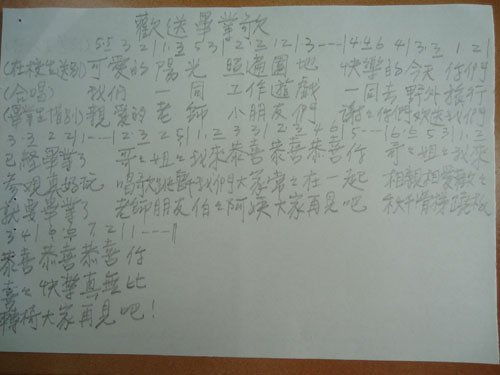 歡送畢業歌
5 5 3 2 | 1 . 3 5 3 | 2 . 2 1 2 | 3 - - - | 4 4 6 4 | 3 . 3 1 2 |
(在校生送別) 可愛的陽光照遍園地 快樂的今天你們
(合唱) 我們一同工作遊戲 一同去野外旅行
(畢業生惜別) 親愛的老師小朋友們 謝謝你們歡送我們
3 3 2 2 | 1 - - - | 2 . 3 2 5 | 1 . 2 3 3 | 2 3 4 6 | 5 - - | 6 . 6 5 3 | 1 . 2
已經畢業了 哥々姐々我來恭喜恭喜恭喜你 哥々姐々我來
參觀真好玩 唱歌 我們大家常々在一起 相親相愛歡々
就要畢業了 老師朋友伯々阿姨大家再見吧 秋千滑梯
3 4 | 6 . 6 7 2 | 1 - - - ||
恭喜恭喜恭喜你
喜々快樂真無比
轉椅大家再見吧！